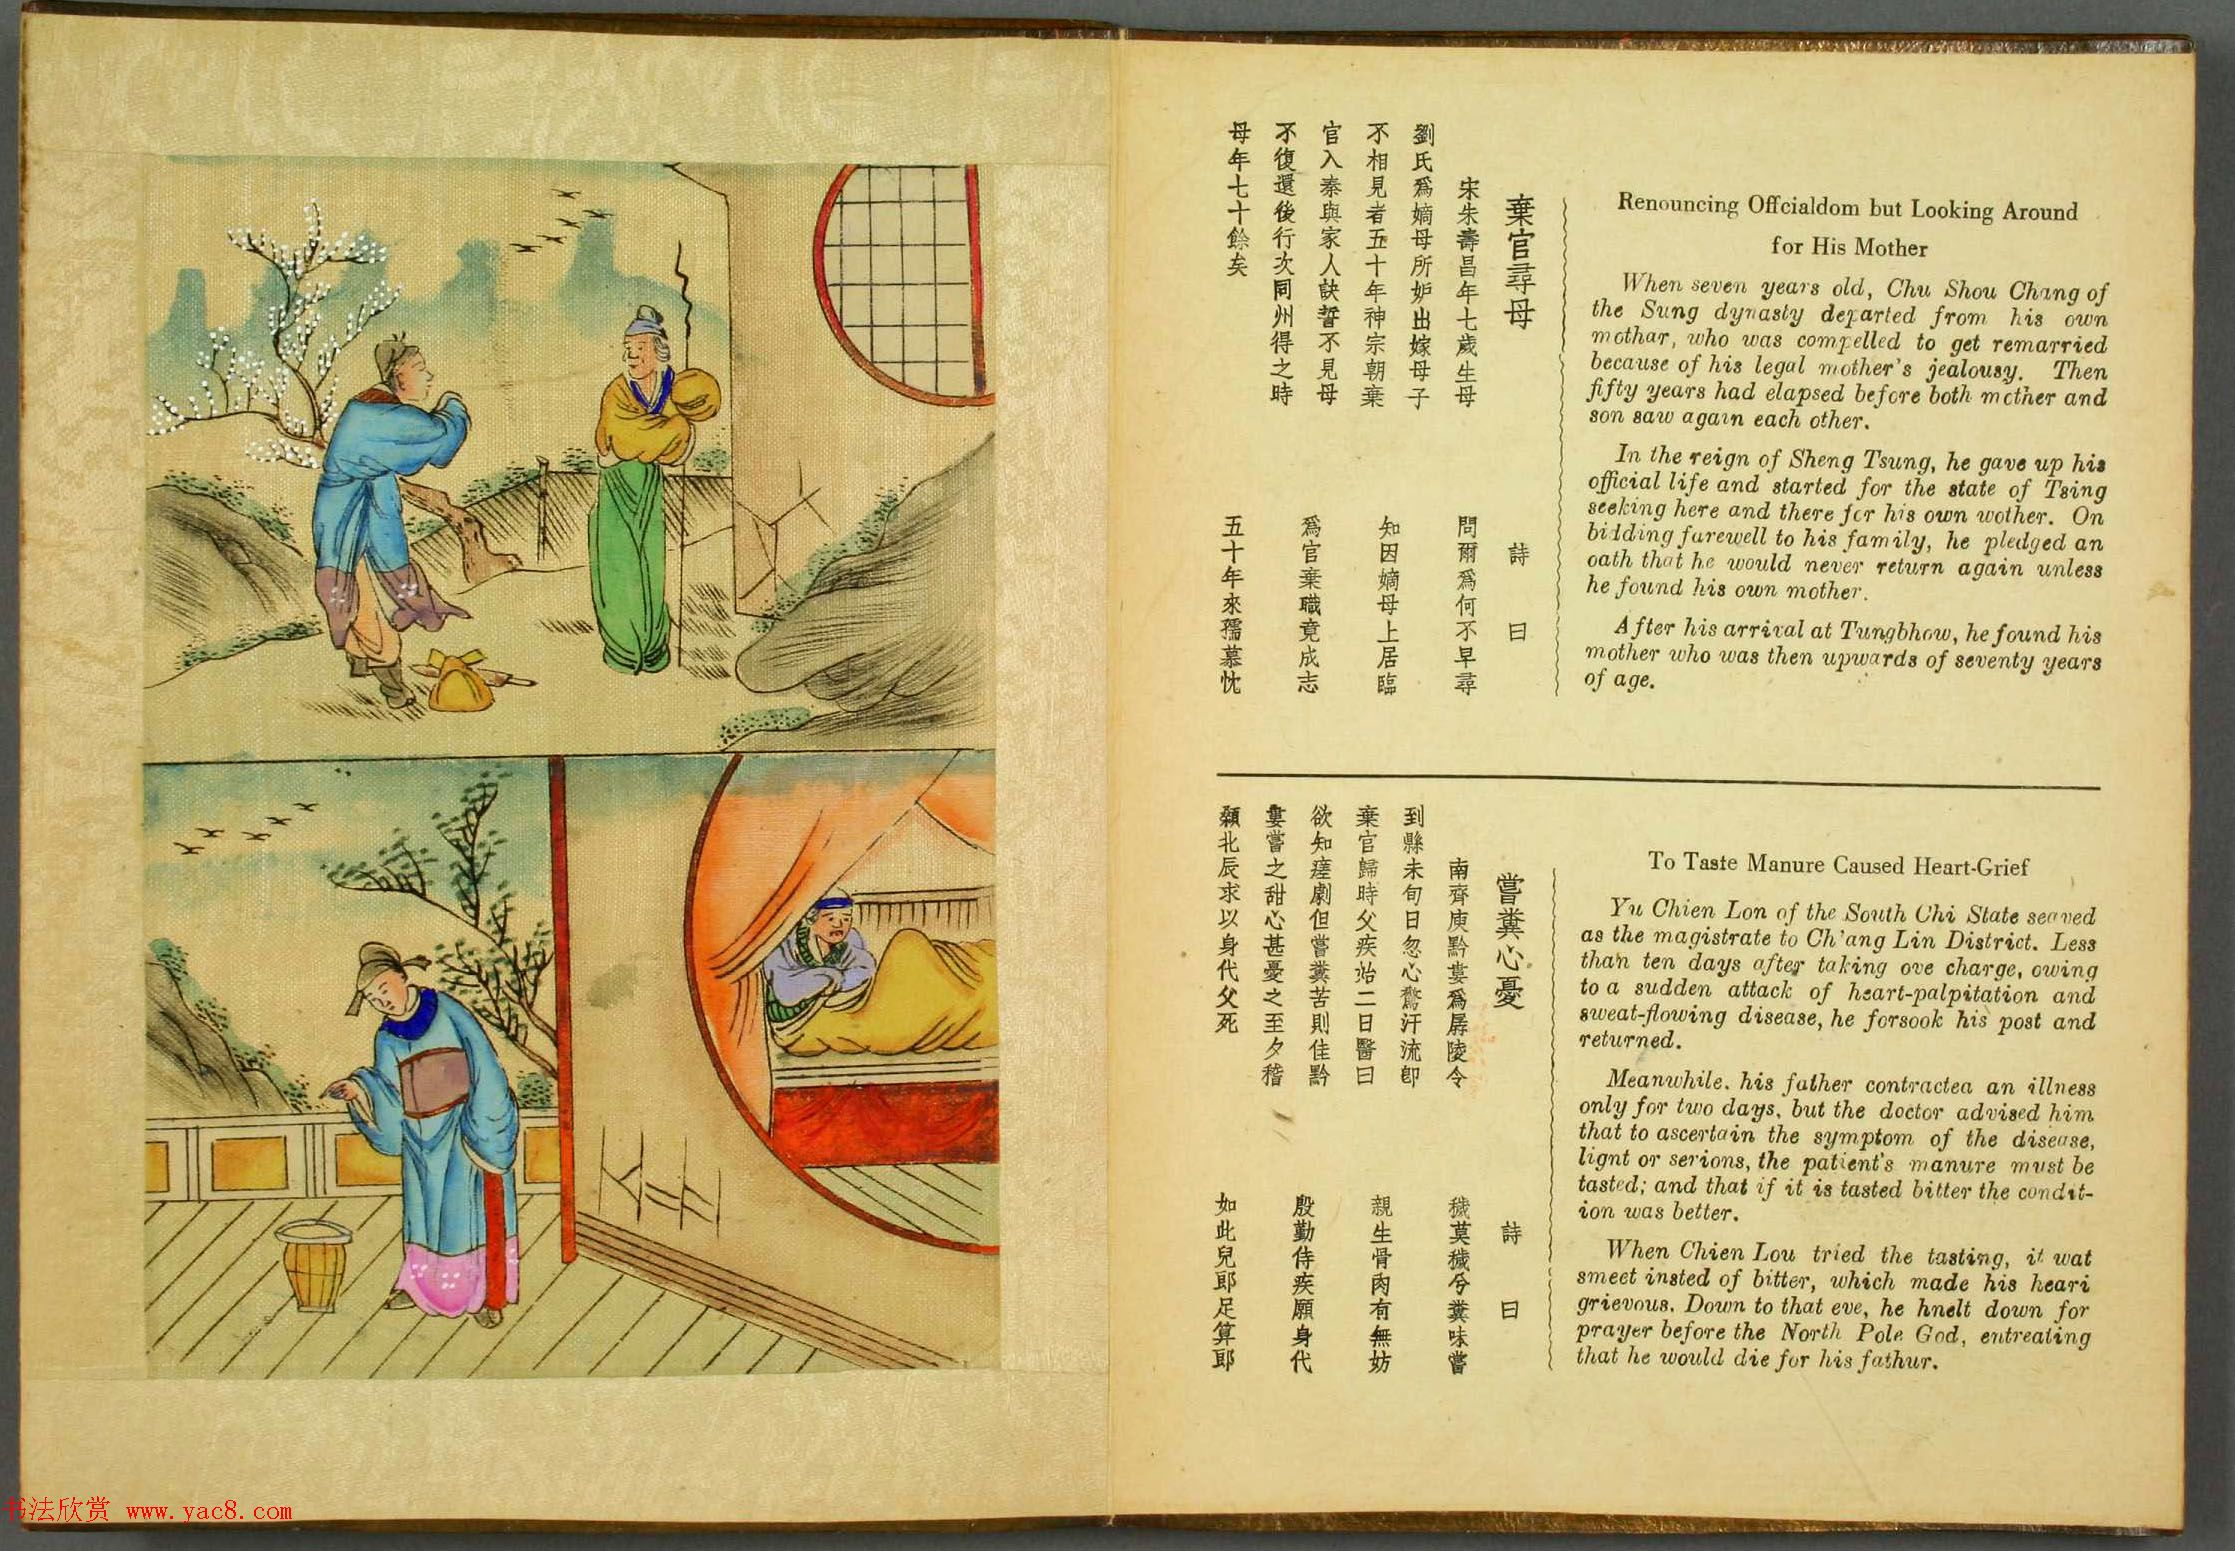 Renouncing Offcialdom but Looking Around
for His Mother
When seven years old, Chu Shou Chang of
the Sung dynasty departed from his own
mothar, who was compelled to get remarried
because of his legal mother's jealousy. Then
fifty years had elapsed before both mother and
son saw again each other.
In the reign of Sheng Tsung, he gave up his
official life and started for the state of Tsing
seeking here and there for his own wother. On
bidding farewell to his family, he pledged an
oath that he would never return again unless
he found his own mother.
After his arrival at Tungbhow, he found his
mother who was then upwards of seventy years
of age.
棄官尋母
宋朱壽昌年七歲生母
劉氏爲嫡母所妒出嫁母子
不相見者五十年神宗朝棄
官入秦與家人訣誓不見母
不復還後行次同州得之時
母年七十餘矣
詩曰
問爾爲何不早尋
知因嫡母上居臨
爲官棄職竟成志
五十年來孺慕忱
To Taste Manure Caused Heart-Grief
Yu Chien Lon of the South Chi State seaved
as the magistrate to Ch'ang Lin District. Less
than ten days after taking ove charge, owing
to a sudden attack of heart-palpitation and
sweat-flowing disease, he forsook his post and
returned.
Meanwhile. his father contractea an illness
only for two days, but the doctor advised him
that to ascertain the symptom of the disease,
lignt or serions, the patient's manure must be
tasted; and that if it is tasted bitter the condit-
ion was better.
When Chien Lou tried the tasting, it wat
smeet insted of bitter, which made his heari
grievous. Down to that eve, he hnelt down for
prayer before the North Pole God, entreating
that he would die for his fathur.
嘗糞心憂
南齊庾黔婁爲孱陵令
到縣未旬日忽心驚汗流即
棄官歸時父疾始二日醫曰
欲知瘥劇但嘗糞苦則佳黔
婁嘗之甜心甚憂之至夕稽
顙北辰求以身代父死
詩曰
穢莫穢兮糞味嘗
親生骨肉有無妨
殷勤侍疾願身代
如此兒郎足算郎
书法欣赏 www.yac8.com